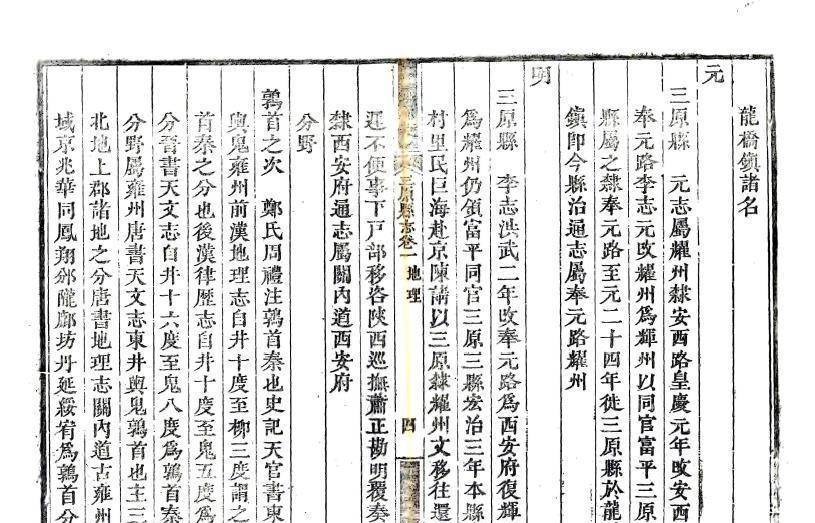 龍橋鎮諸名
元
三原縣 元志屬耀州隸安西路皇慶元年改安西
奉元路李志元改耀州爲輝州以同官富平三原
縣屬之隸奉元路至元二十四年徙三原縣於龍
鎮卽今縣治通志屬奉元路耀州
明
三原縣 李志洪武二年改奉元路爲西安府復輝
爲耀州仍領富平同官三原三縣宏治三年本縣
村里民巨海赴京陳請以三原隸耀州文移往還
三原縣志卷一 地理 四
遲不便事下戸部移咨陝西巡撫蕭正勘明覆奏
隸西安府通志屬關內道西安府
分野
鶉首之次 鄭氏周禮注鶉首秦也史記天官書東
與鬼雍州前漢地理志自井十度至柳三度謂之
首秦之分也後漢律歷志自井十度至鬼五度爲
分晉書天文志自井十六度至鬼八度爲鶉首秦
分野屬雍州唐書天文志東井與鬼鶉首也主三
北地上郡諸地之分唐書地理志關內道古雍州
域京兆華同鳳翔邠隴鄜坊丹延綏宥爲鶉首分